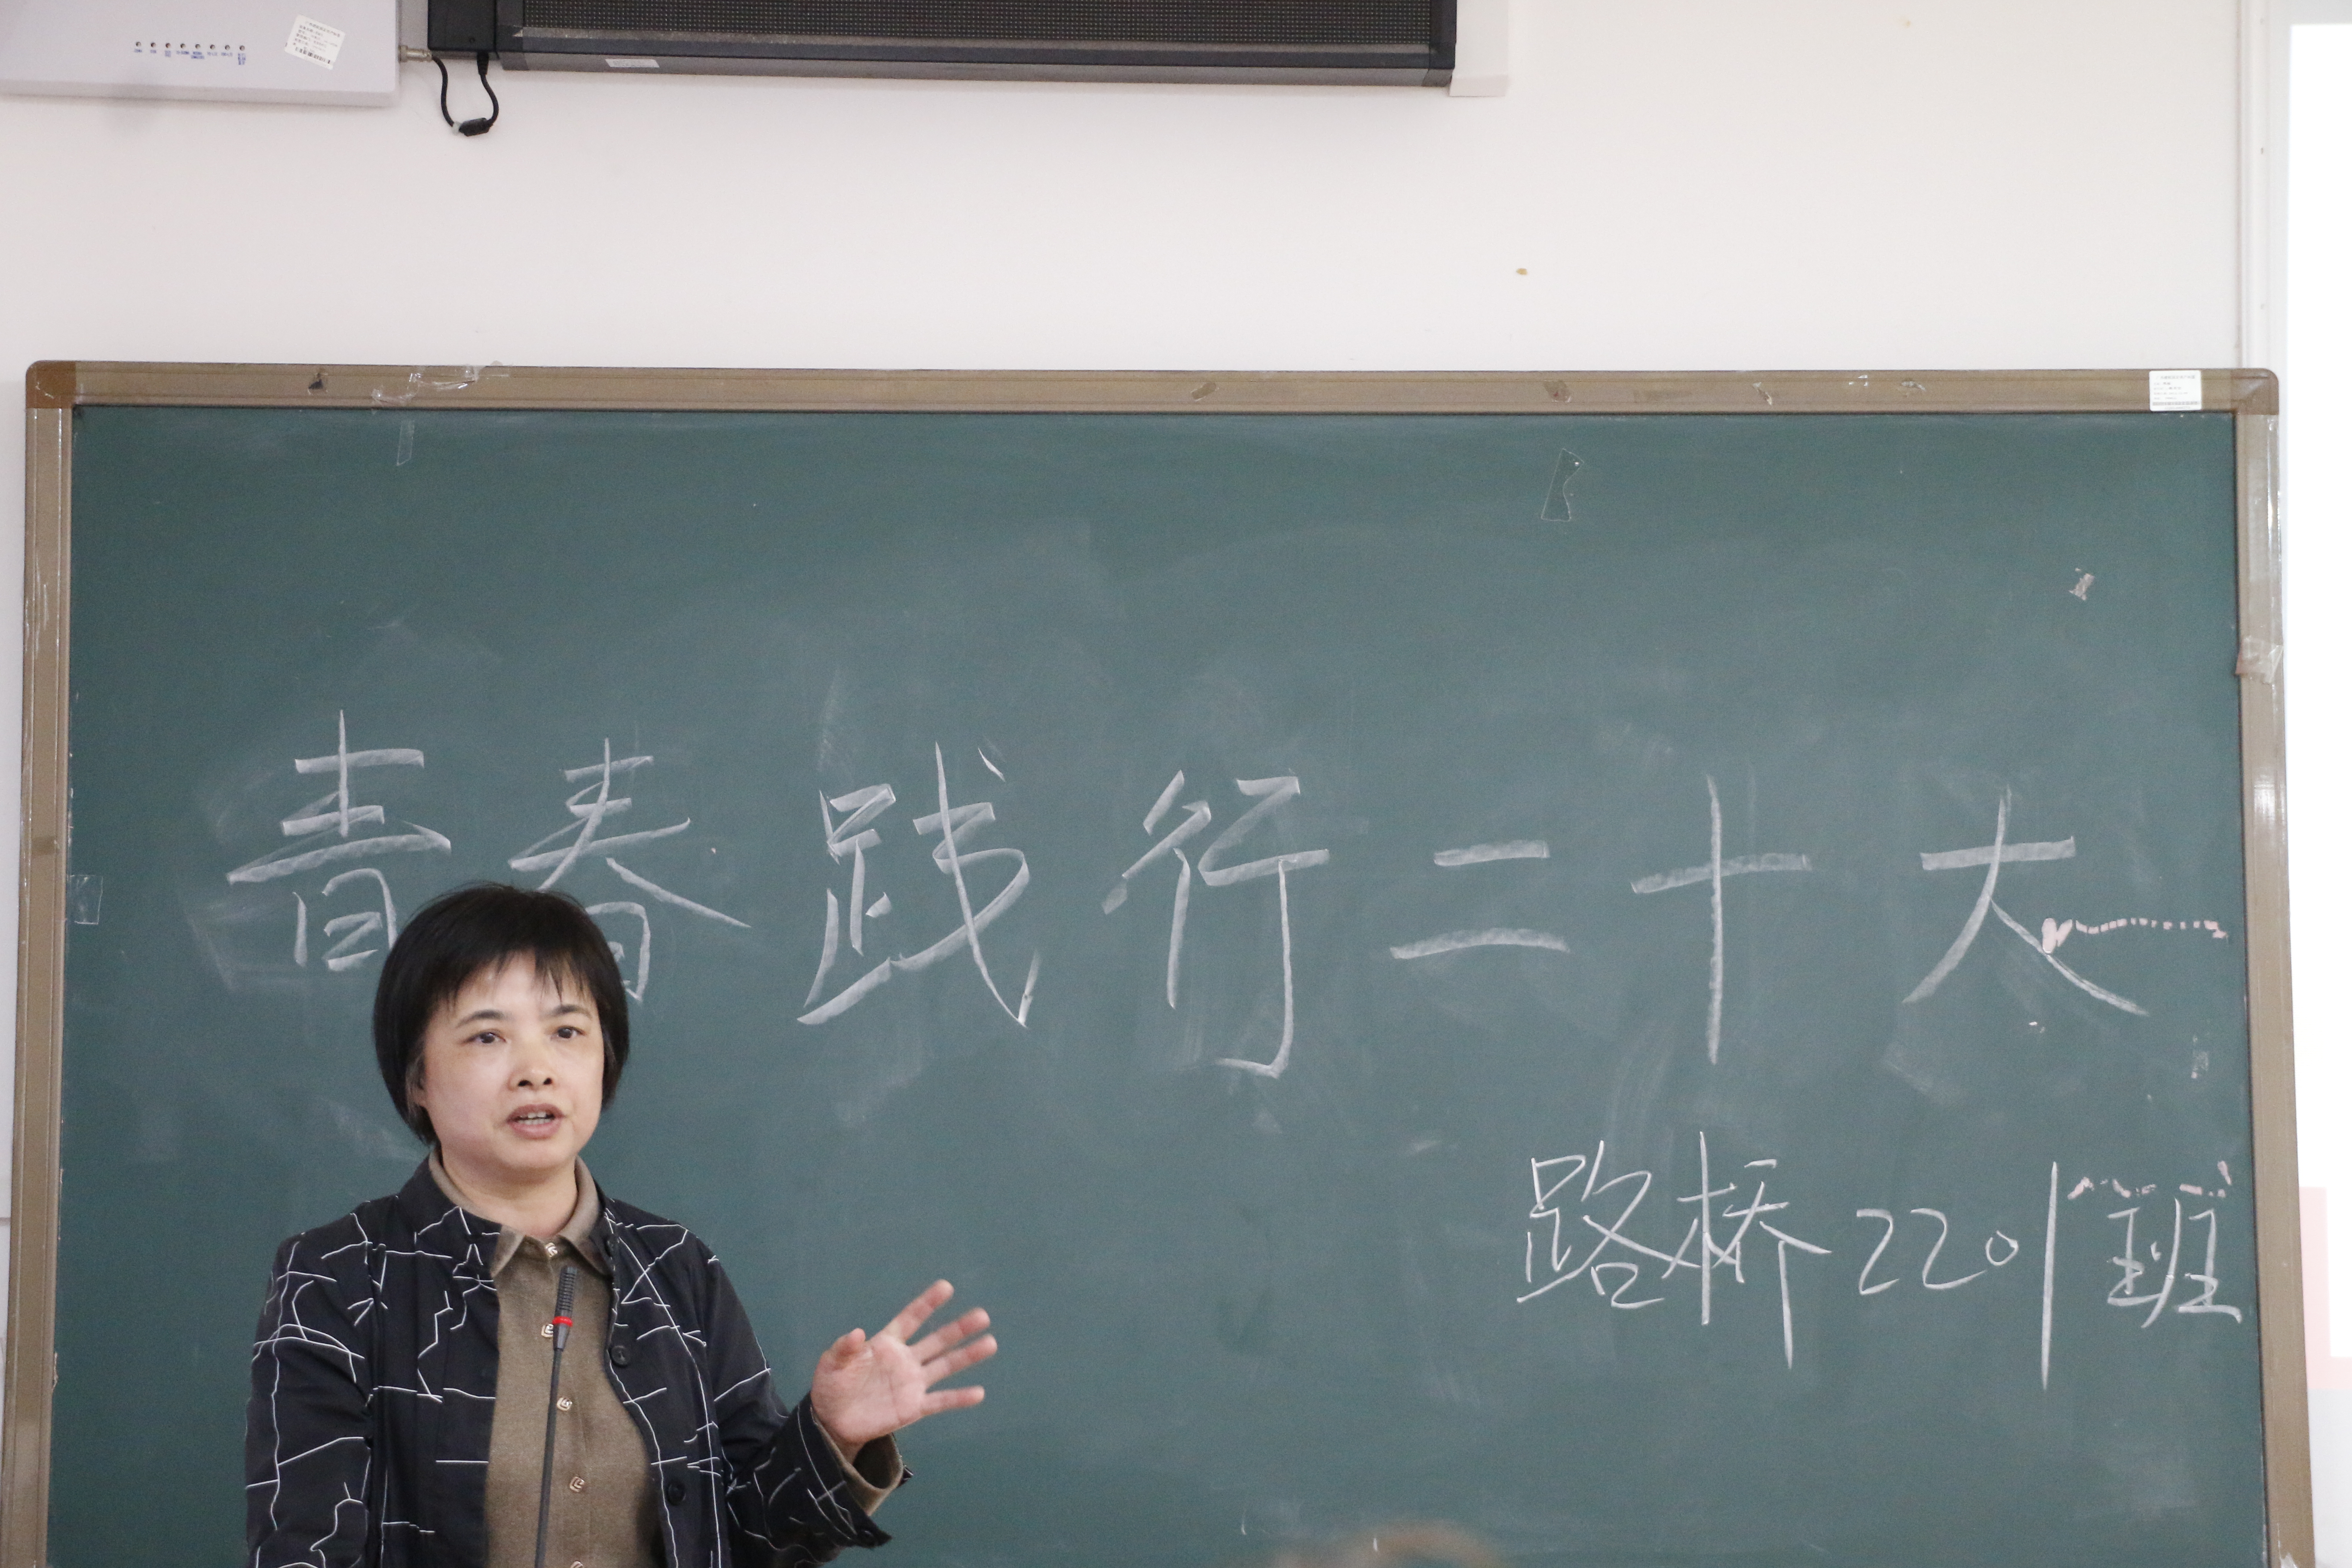 青春践行二十大
路桥2201班